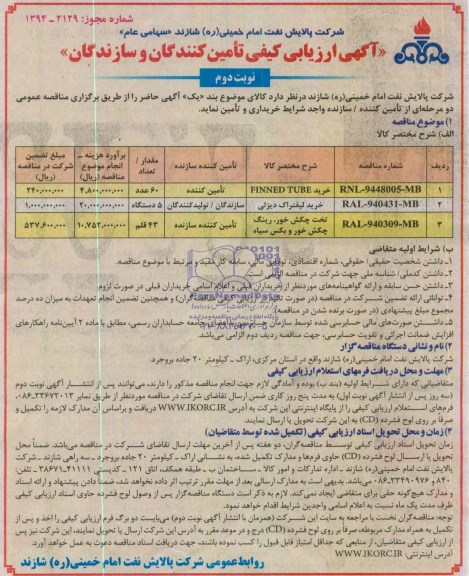 شماره مجوز: ۲۱۲۹- ۱۳۹۴
شرکت پالایش نفت امام خمینی(ره) شازند «سهامی عام»
«آگهی ارزیابی کیفی تأمین کنندگان و سازندگان»
نوبت دوم
شرکت پالایش نفت امام خمینی(ره) شازند درنظر دارد کالای موضوع بند «یک» آگهی حاضر را از طریق برگزاری مناقصه عمومی
دو مرحله‌ای از تأمین کننده / سازنده واجد شرایط خریداری و تأمین نماید.
۱) موضوع مناقصه
الف) شرح مختصر کالا
ردیف شماره مناقصه شرح مختصر کالا تأمین کننده سازنده مقدار / تعداد برآورد هزینه انجام موضوع مناقصه (ریال) مبلغ تضمین شرکت در مناقصه (ریال)
۱ RNL-9448005-MB خرید FINNED TUBE تأمین کننده ۶۰ عدد ۴,۸۰۰,۰۰۰,۰۰۰ ۲۴۰,۰۰۰,۰۰۰
۲ RAL-940431-MB خرید لیفتراک دیزلی سازندگان / تولیدکنندگان ۵ دستگاه ۲۰,۰۰۰,۰۰۰,۰۰۰ ۱,۰۰۰,۰۰۰,۰۰۰
۳ RAL-940309-MB تخت چکش خور، رینگ چکش خور و بکس سیاه تأمین کننده ۴۳ قلم ۱۰,۷۵۲,۰۰۰,۰۰۰ ۵۳۷,۶۰۰,۰۰۰
ب) شرایط اولیه متقاضی
۱ـ داشتن شخصیت حقیقی/ حقوقی، شماره اقتصادی، توانایی مالی، سابقه کار مفید و مرتبط با موضوع مناقصه.
۲ـ داشتن کدملی/ شناسه ملی جهت شرکت در مناقصه الزامی است.
۳ـ داشتن حسن سابقه و ارائه گواهینامه‌های موردنظر از خریداران قبلی و اعلام اسامی خریداران قبلی در صورت لزوم.
۴ـ توانایی ارائه تضمین شرکت در مناقصه و همچنین تضمین انجام تعهدات به میزان ده درصد
مجموع مبلغ پیشنهادی (در صورت برنده شدن در مناقصه).
۵ـ داشتن صورت‌های مالی حسابرسی شده توسط سازمان جامعه حسابداران رسمی، مطابق با ماده ۲ آیین‌نامه راهکارهای
افزایش ضمانت اجرائی و تقویت حسابرسی، جهت مناقصه ردیف دوم الزامی می‌باشد.
۲) نام و نشانی دستگاه مناقصه‌گزار
شرکت پالایش نفت امام خمینی(ره) شازند واقع در استان مرکزی، اراک ـ کیلومتر ۲۰ جاده بروجرد.
۳) مهلت و محل دریافت فرمهای استعلام ارزیابی کیفی
متقاضیانی که دارای شرایط اولیه (بند ب) بوده و آمادگی لازم جهت انجام مناقصه مذکور را دارند، می‌توانند پس از انتشار آگهی نوبت دوم
(سه روز پس از انتشار آگهی نوبت اول) به مدت پنج روز کاری ضمن ارسال تقاضای شرکت در مناقصه موردنظر از طریق نمابر ۳۳۶۷۲۰۱۳-۰۸۶
فرم‌های استعلام ارزیابی کیفی را از پایگاه اینترنتی این شرکت به آدرس WWW.IKORC.IR دریافت و براساس آن مدارک لازمه را تکمیل و
صرفاً بر روی لوح فشرده (CD) به این شرکت تحویل یا ارسال نمایند.
۴) زمان و محل تحویل اسناد ارزیابی کیفی (تکمیل شده توسط متقاضیان)
زمان تحویل اسناد ارزیابی کیفی توسط مناقصه‌گران، دو هفته پس از آخرین مهلت ارسال تقاضای شرکت در مناقصه می‌باشد. ضمناً محل
تحویل یا ارسال لوح فشرده (CD) حاوی فرم‌ها و مدارک تکمیل شده، به نشانی اراک ـ کیلومتر ۲۰ جاده بروجرد ـ سه راهی شازند ـ شرکت
پالایش نفت امام خمینی(ره) شازند ـ اداره تدارکات و امور کالا ـ ساختمان ب ـ طبقه همکف، اتاق ۱۲۱ ـ کدپستی ۴۱۱۱۱-۳۸۶۷۱ ـ تلفن:
۸۴۰ و ۳۳۴۹۰۹۷۶-۰۸۶ می‌باشد. بدیهی است به مدارک ارسالی بعد از مهلت مقرر ترتیب اثر داده نخواهد شد، ضمناً دادن پیشنهاد و ارائه اسناد
و مدارک هیچگونه حقی برای متقاضی ایجاد نمی‌کند. لازم به ذکر است دستگاه مناقصه‌گزار پس از وصول لوح فشرده حاوی اسناد ارزیابی کیفی
ظرف مدت یک ماه نسبت به اعلام اسامی واجدین شرایط اقدام خواهد نمود.
توجه: مناقصه‌گران نخست با مراجعه به سایت این شرکت (همزمان با انتشار آگهی نوبت دوم) می‌بایست دو برگ فرم ارزیابی کیفی را اخذ و پس از
تکمیل به همراه مدارک مربوطه، صرفاً بر روی لوح فشرده (CD) درج و در موعد مقرر به آدرس این شرکت ارسال یا تحویل نمایند، این شرکت نیز پس
از ارزیابی کیفی متقاضیان، از منابعی که حداقل امتیاز قابل قبول را کسب نموده باشند، جهت دریافت اسناد مناقصه دعوت به عمل خواهد آورد.
آدرس اینترنتی: WWW.IKORC.IR
روابط عمومی شرکت پالایش نفت امام خمینی(ره) شازند